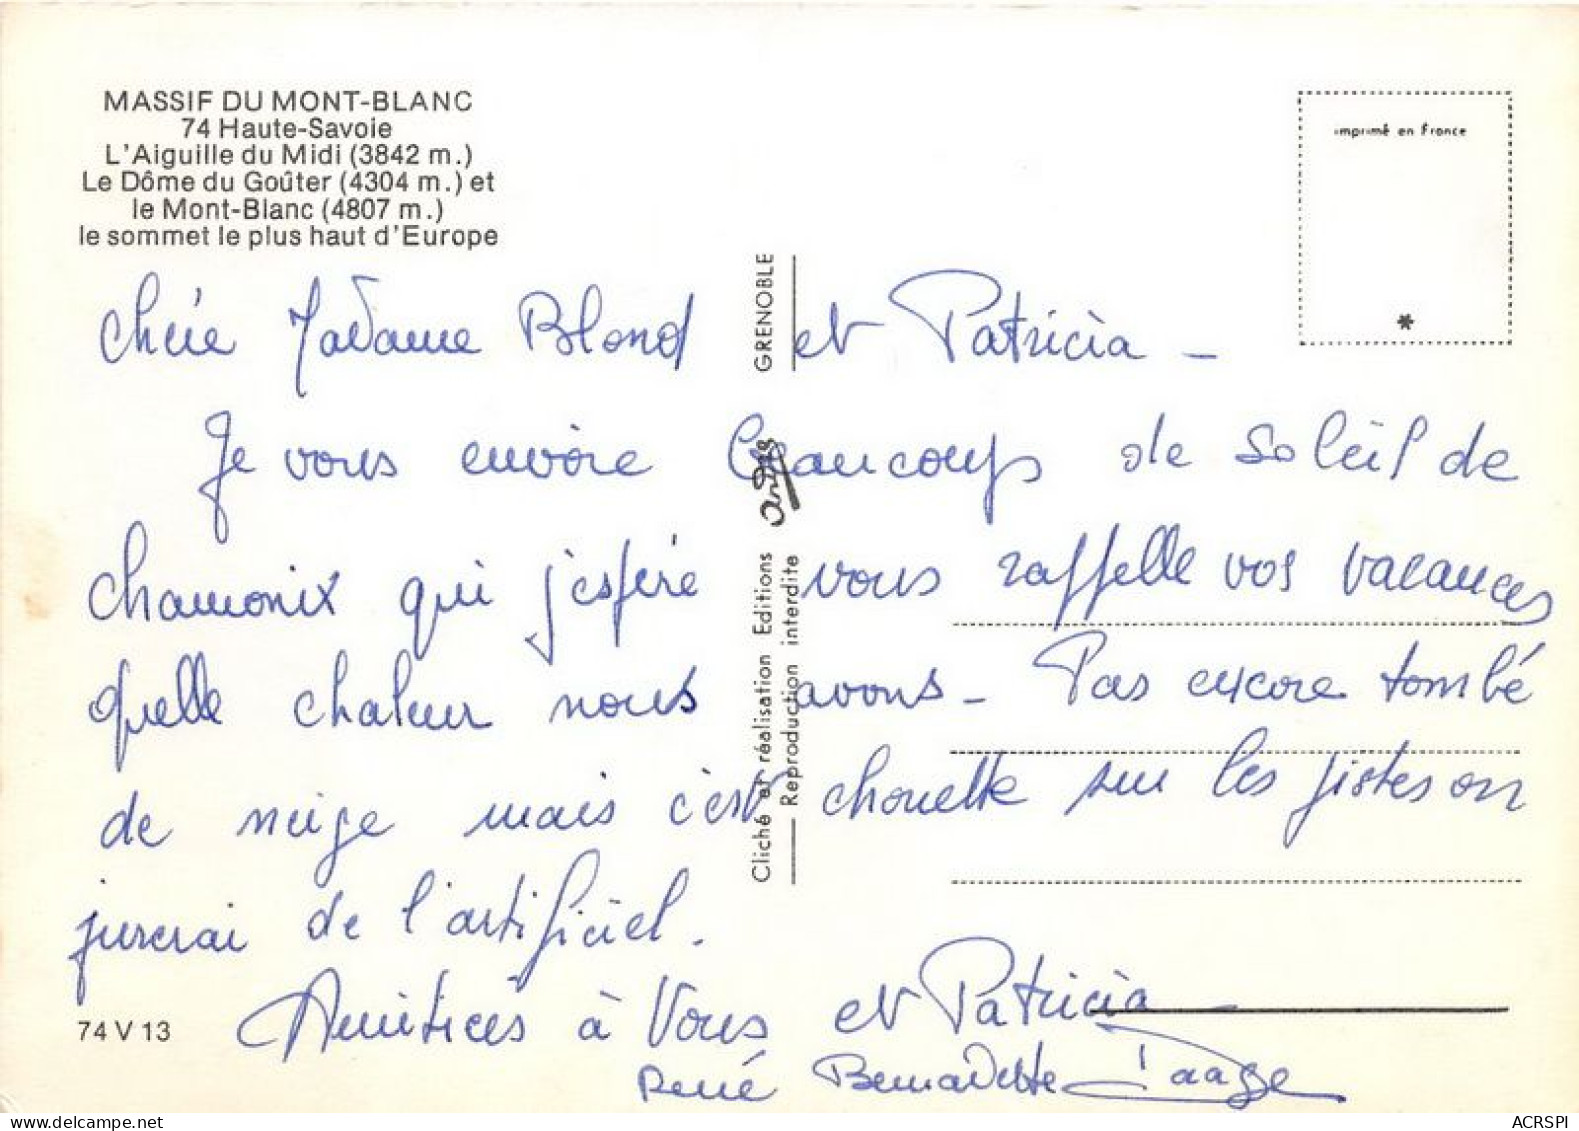 MASSIF DU MONT-BLANC
74 Haute-Savoie
L'Aiguille du Midi (3842 m.)
Le Dôme du Goûter (4304 m.) et
le Mont-Blanc (4807 m.)
le sommet le plus haut d'Europe
imprimé en France
*
Chérie Madame Blond et Patricia -
Je vous envoie beaucoup de soleil de
Chamonix qui j'espère vous rappelle vos vacances
quelle chaleur nous avons - Pas encore tombé
de neige mais c'est chouette sur les pistes on
jurerai de l'artificiel.
Amitiées à Vous et Patricia
René Bernadette
74 V 13
Cliché et réalisation Editions andre GRENOBLE
Reproduction interdite
ACRSPI